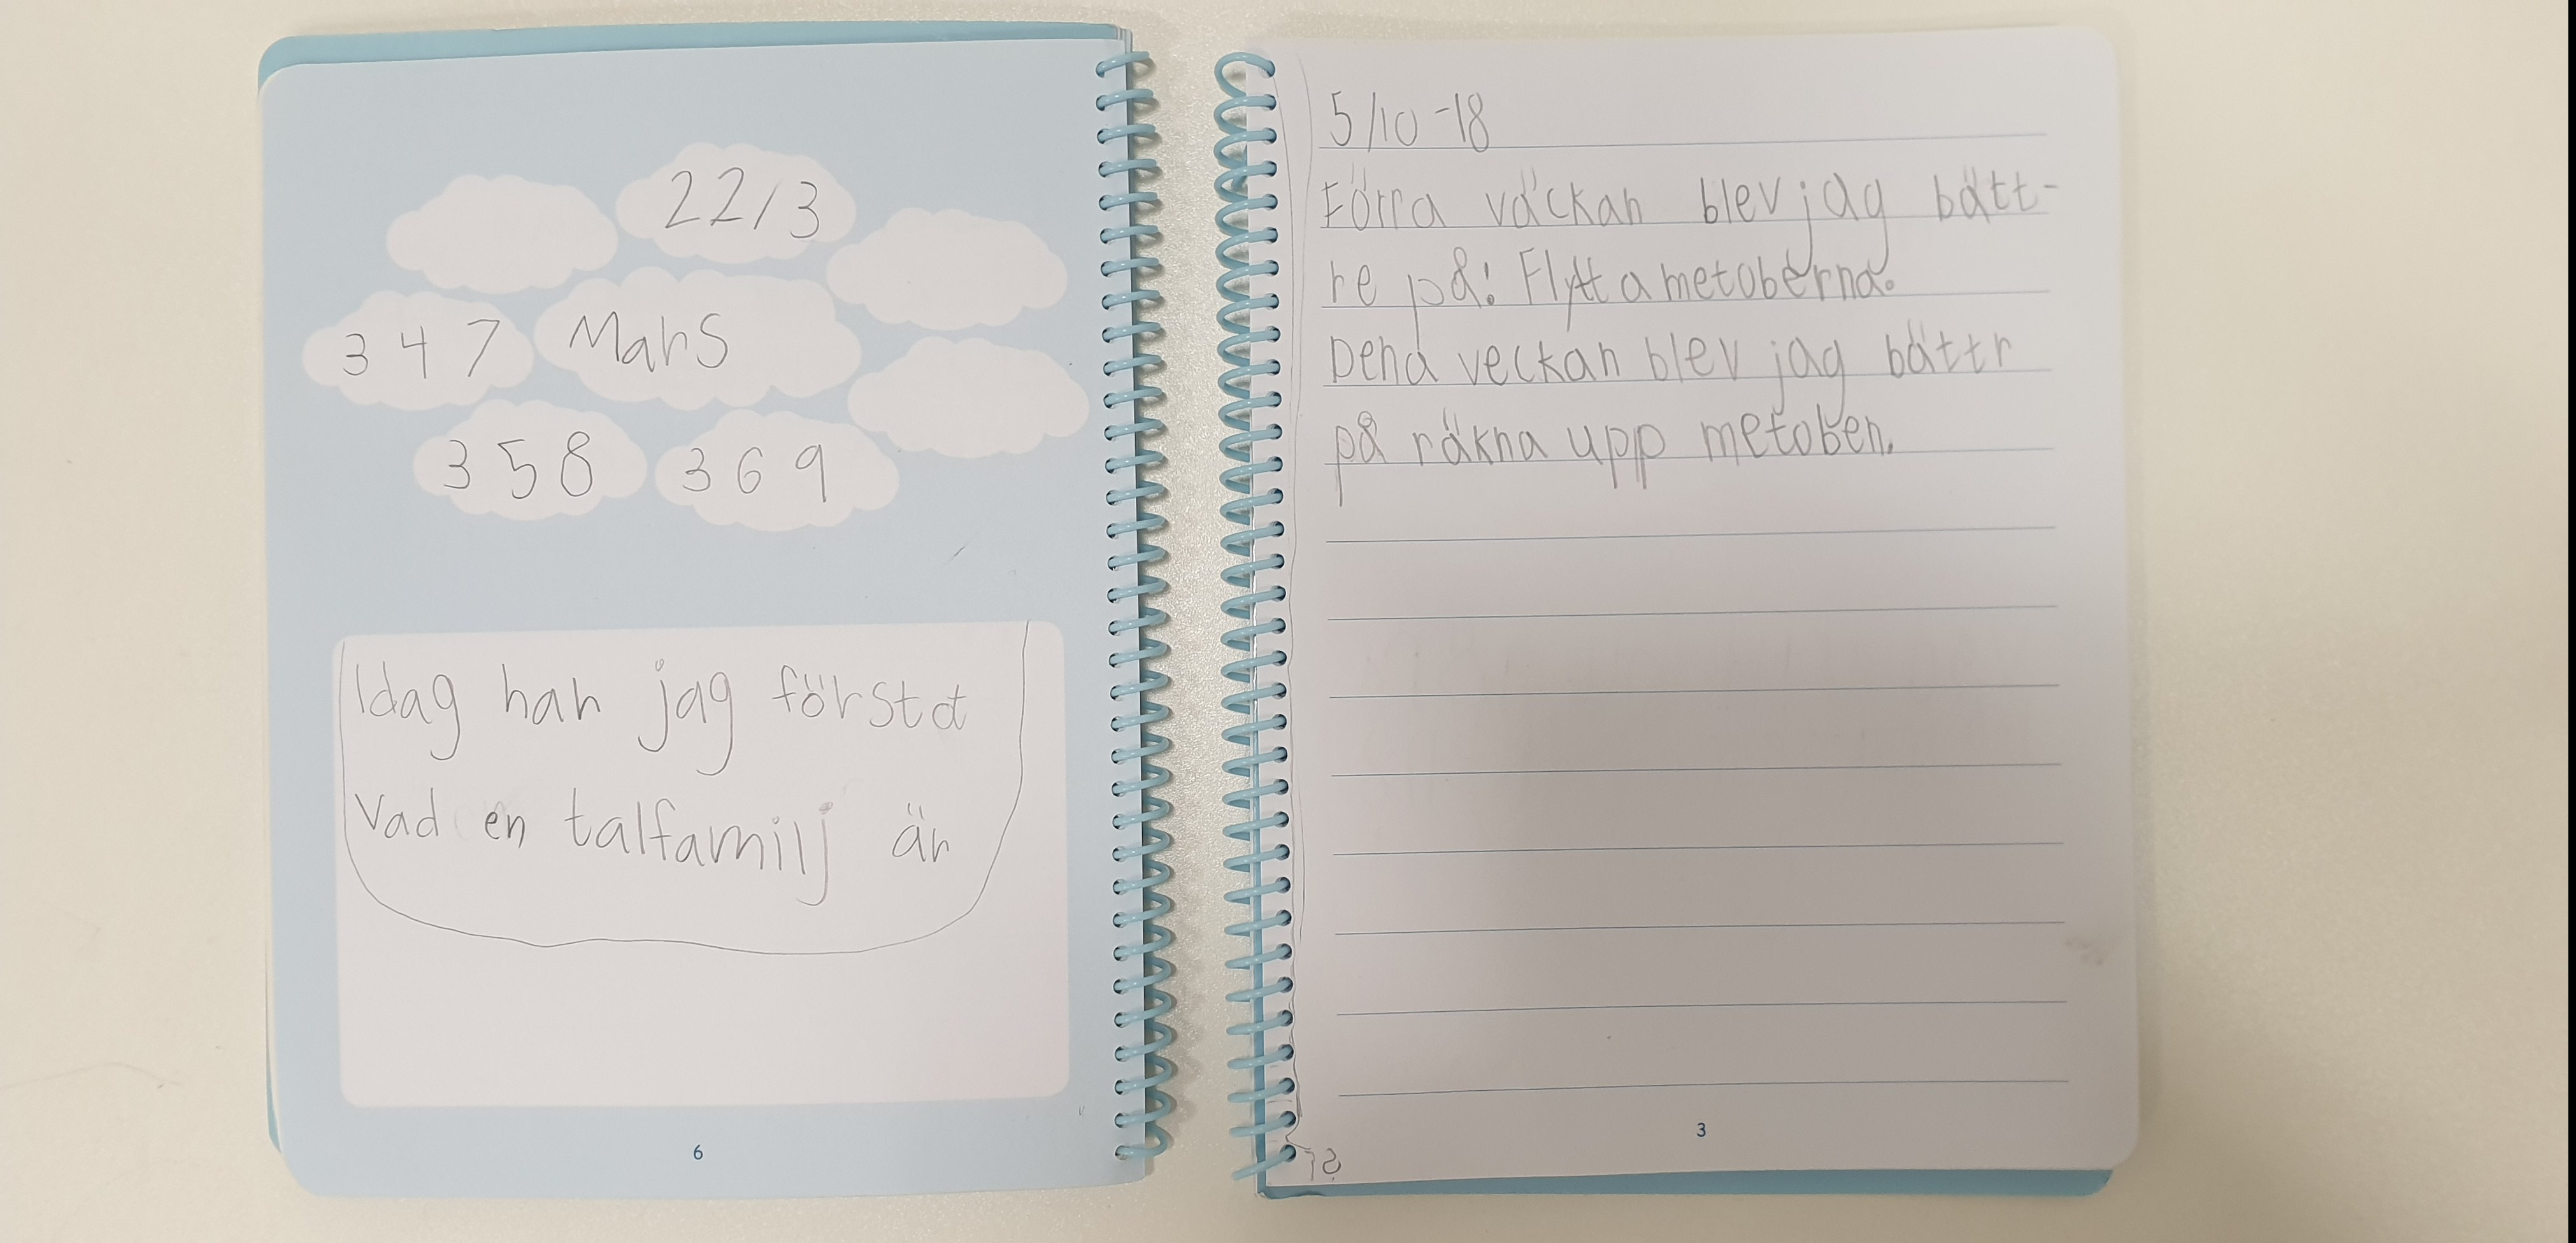 22/3
3 4 7
Mars
3 5 8
3 6 9
Idag har jag förståt
Vad en talfamilj är
6
5/10-18
Förra väckan blev jag bätt-
re på: Flytta metoberna.
Dena veckan blev jag bättr
på räkna upp metoben.
3